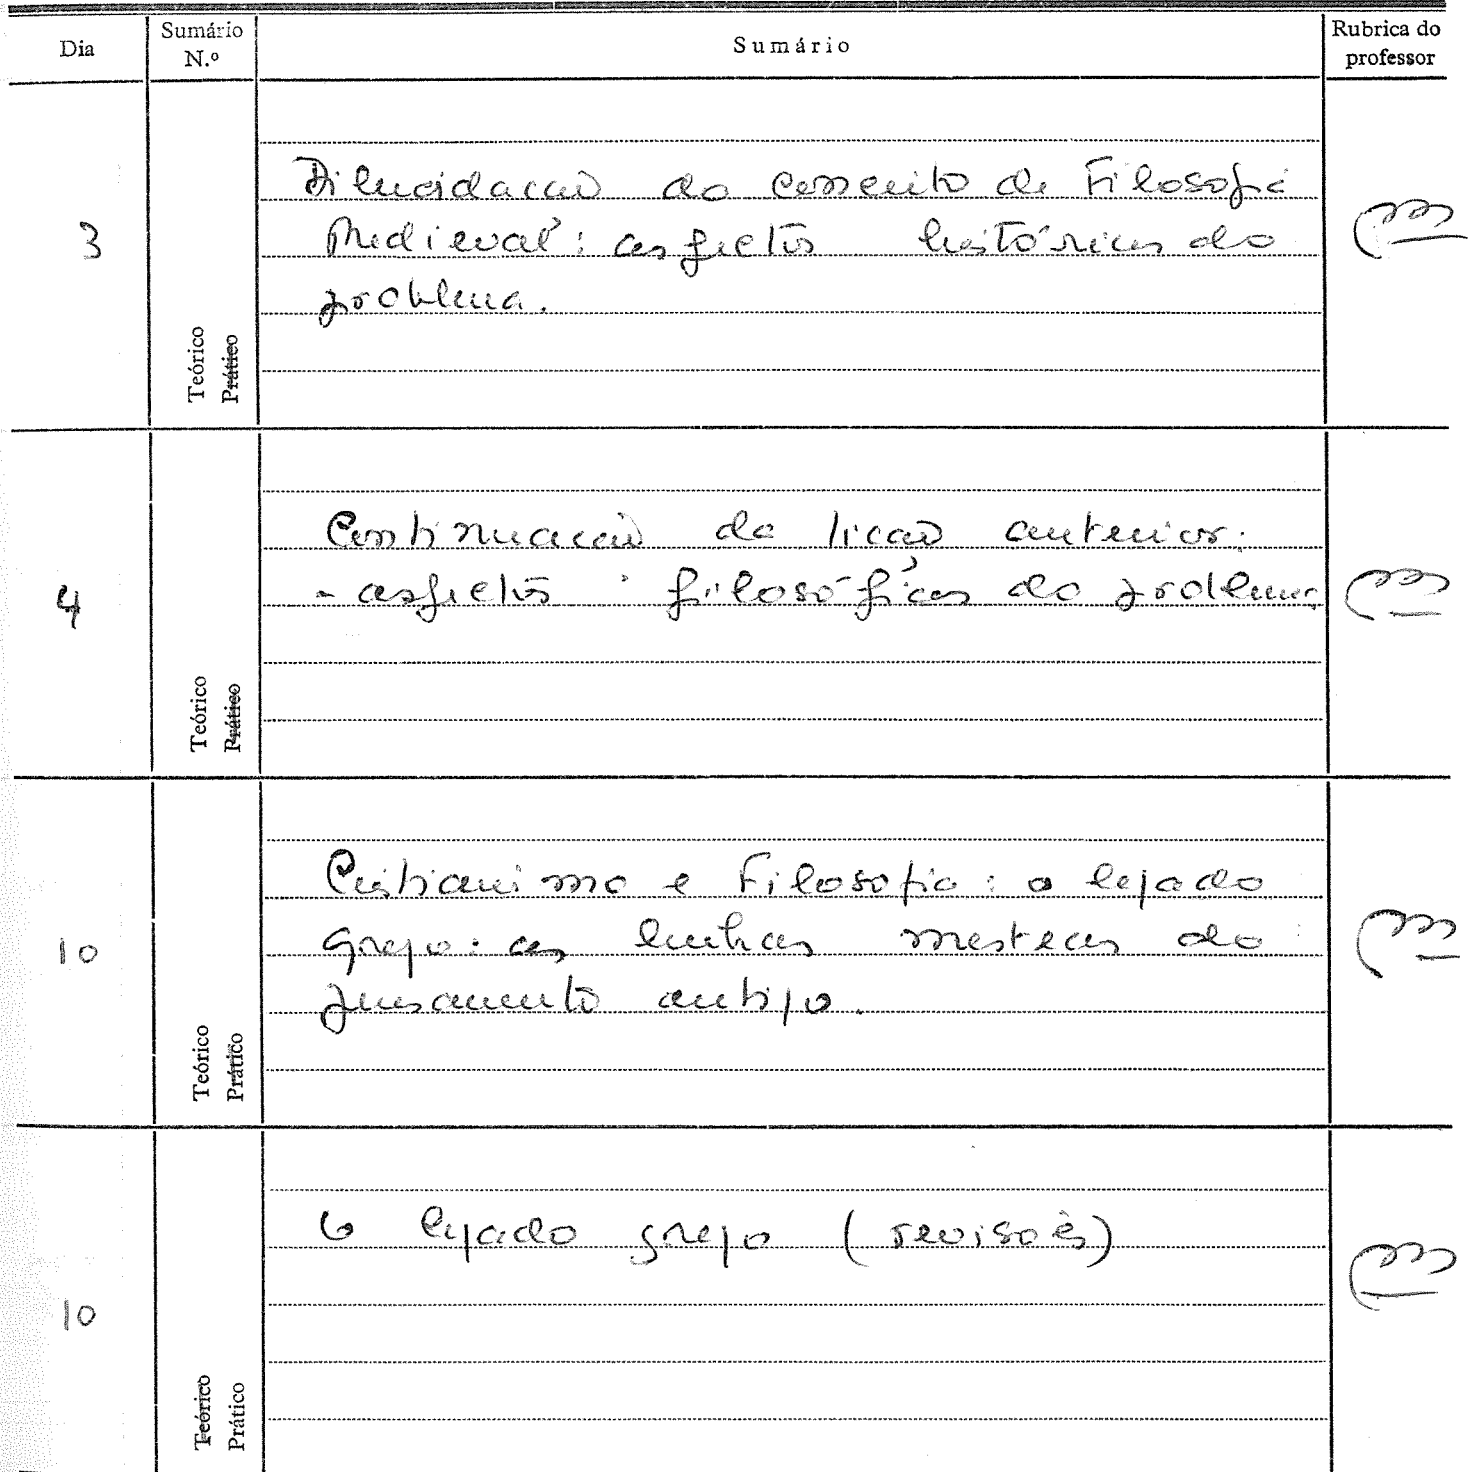 Dia
Sumário N.º
Sumário
Rubrica do professor
3
Teórico
Prático
Dilucidação do conceito de Filosofia
Medieval: aspectos históricos do
problema.
4
Teórico
Prático
Continuação da lição anterior:
- aspectos filosóficos do problema
10
Teórico
Prático
Cristianismo e Filosofia: o legado
grego: as linhas mestras do
pensamento antigo.
10
Teórico
Prático
O legado grego (revisões)